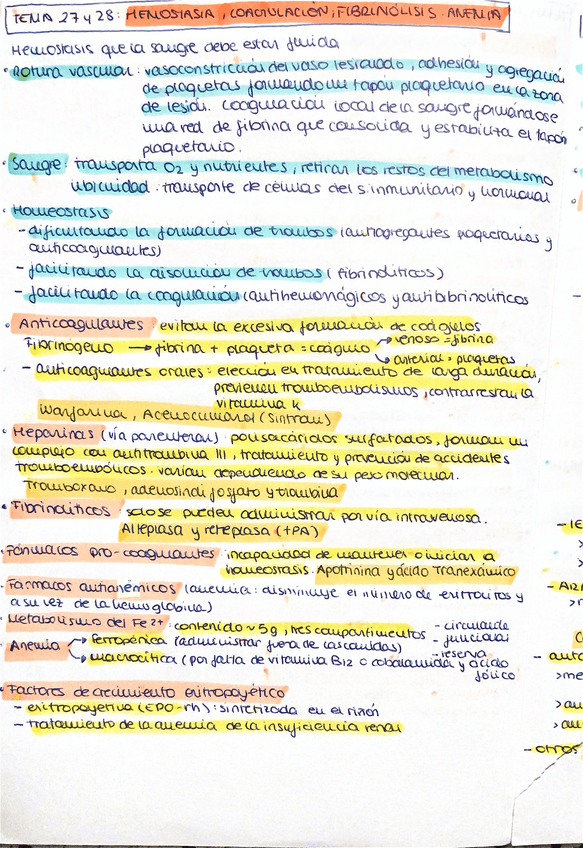 TEMA 27 y 28: HEMOSTASIA, COAGULACION, FIBRINÓLISIS. ANEMIA
Hemostasis que la sangre debe estar fluida
· Rotura vascular: vasoconstricción del vaso lesionado, adhesión y agregación
de plaquetas formando un tapón plaquetario en la zona
de lesión. Coagulación local de la sangre formándose
una red de fibrina que consolida y estabiliza el tapón
plaquetario.
· Sangre: transporta O2 y nutrientes, retiran los restos del metabolismo
ubicuidad: transporte de células del s.inmunitario y hormonal
· Homeostasis
- dificultando la formación de trombos (antiagregantes plaquetarios y
anticoagulantes)
- facilitando la disolución de trombos (fibrinolíticos)
- facilitando la coagulación (antihemorrágicos y antifibrinolíticos
· Anticoagulantes evitan la excesiva formación de coágulos
Fibrinógeno → fibrina + plaqueta = coágulo → venoso = fibrina
→ arterial = plaquetas
- anticoagulantes orales: elección en tratamiento de larga duración,
previenen tromboembolismos, contrarrestan la
vitamina K
Warfarina, Acenocumarol (Sintrom)
· Heparinas (vía parenteral) polisacáridos sulfatados, forman un
complejo con antitrombina III, tratamiento y prevención de accidentes
tromboembólicos. varían dependiendo de su peso molecular.
Tromboxano, adenosindifosfato y trombina
· Fibrinolíticos: solo se pueden administrar por vía intravenosa.
Alteplasa y reteplasa (tPA)
· Fármacos pro-coagulantes incapacidad de mantener o iniciar la
homeostasis. Apotrinina y ácido Tranexámico
· Farmacos antianémicos (anemia: disminuye el número de eritrocitos y
a su vez de la hemoglobina)
· Metabolismo del Fe2+: contenido ~5g, tres compartimentos - circulante
- funcional
- reserva
· Anemia → ferropénica (administrar fuera de las comidas)
→ macrocítica (por falta de vitamina B12 o cobalamida y ácido
fólico
· Factores de crecimiento eritropoyético
- eritropoyetina (EPO-rh): sintetizada en el riñón
- tratamiento de la anemia de la insuficiencia renal
- otros